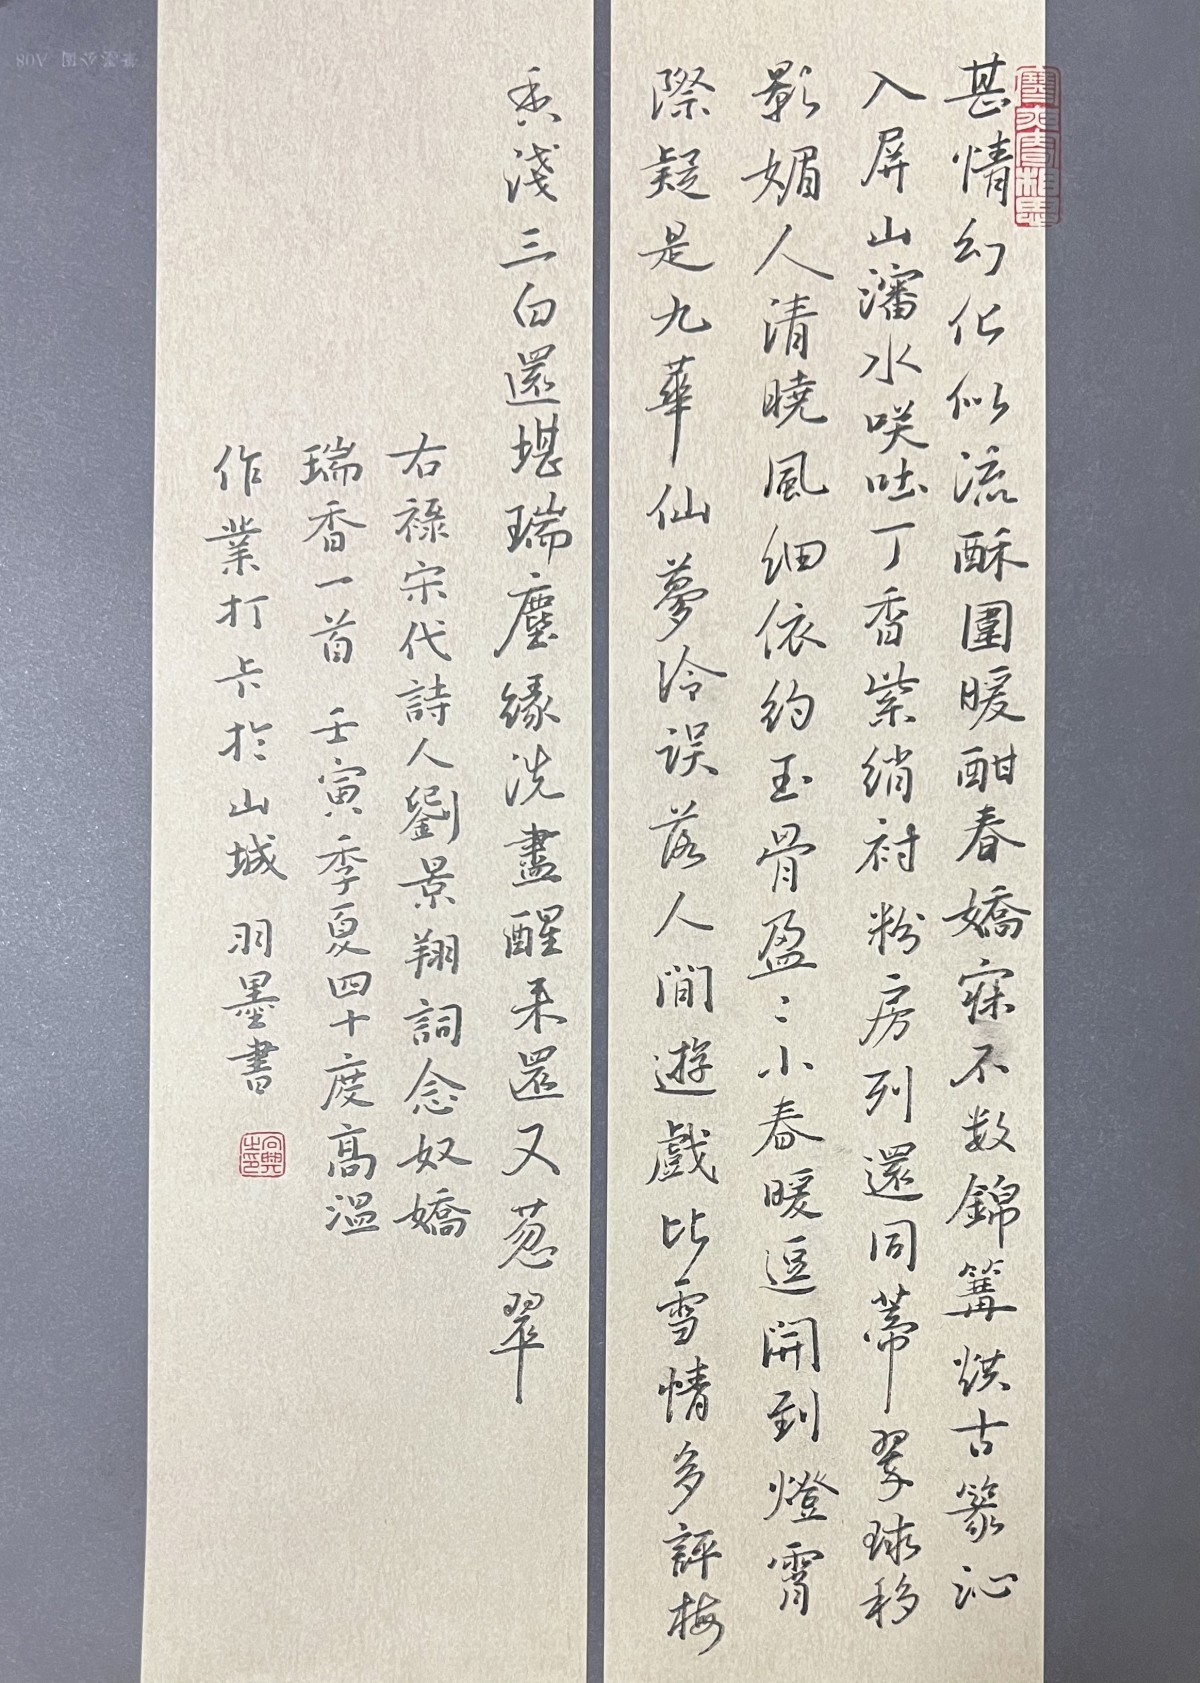 甚情幻化似流酥圍暖酣春嬌寐不数錦篝烘古篆沁
入屏山瀋水咲吐丁香紫绡衬粉房列還同蒂翠球移
影媚人清曉風细依约玉骨盈〻小春暖逗開到燈宵
際疑是九華仙夢冷误落人間遊戲比雪情多評梅
香淺三白還堪瑞塵缘洗盡醒来還又葱翠
右禄宋代詩人劉景翔詞念奴嬌
瑞香一首 壬寅季夏四十度髙温
作業打卡於山城 羽墨書